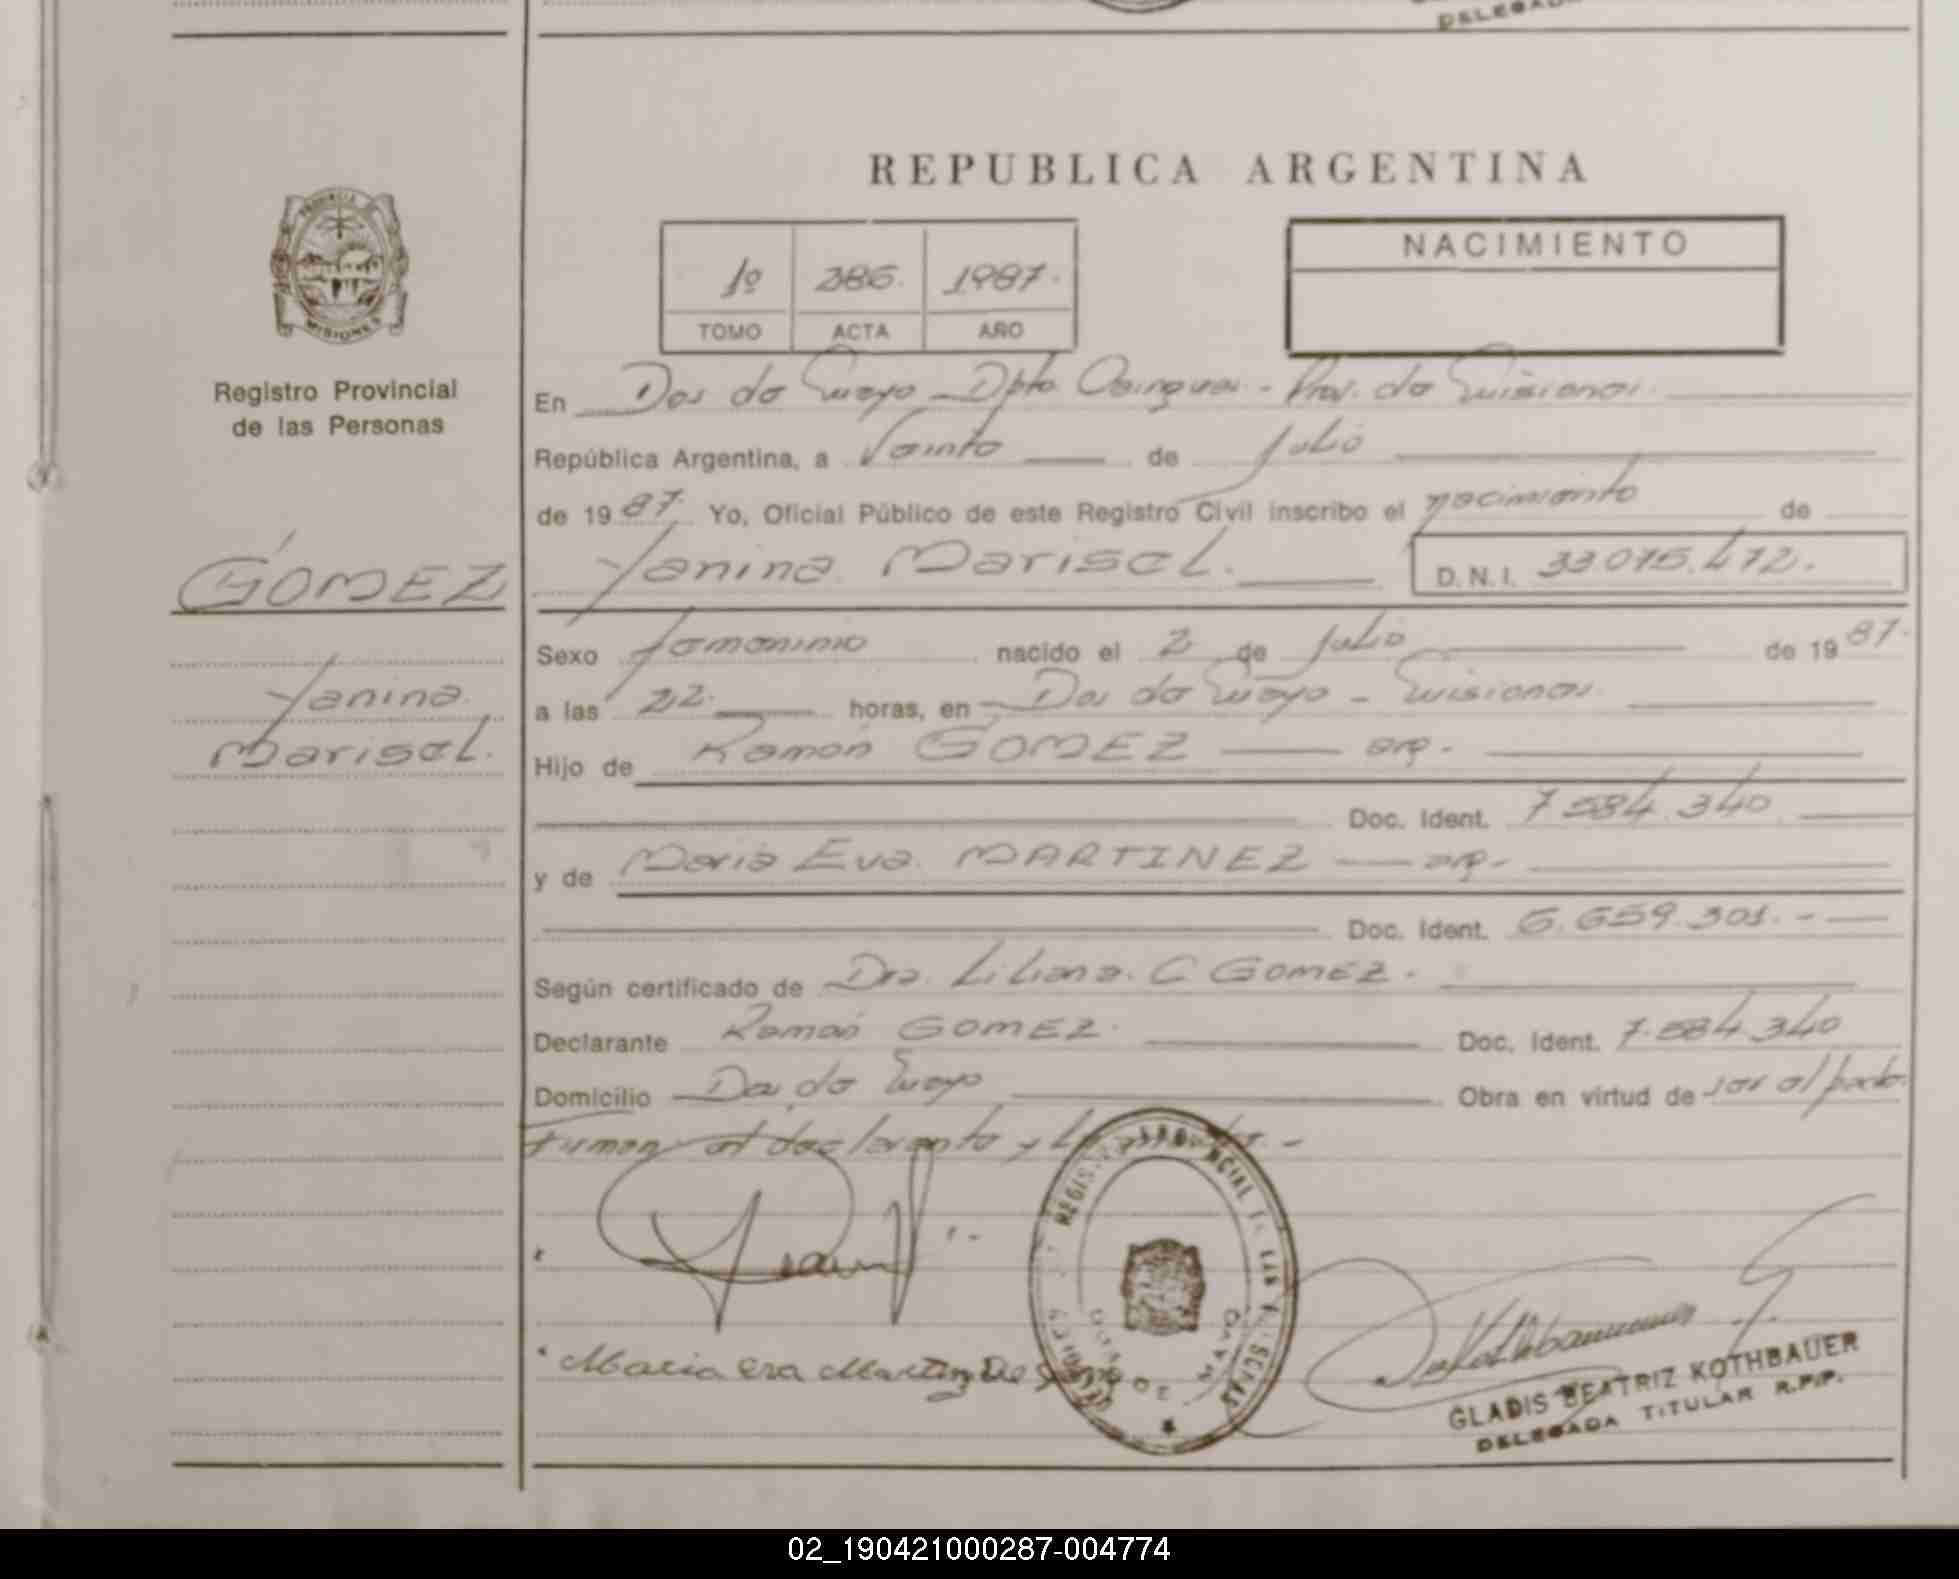 DELEGADA
REPUBLICA ARGENTINA
PROVINCIA DE
MISIONES
1º 386. 1987.
TOMO ACTA AÑO
NACIMIENTO
Registro Provincial
de las Personas
En Dos de Mayo - Dpto. Cainguas - Prov. de Misiones.
República Argentina, a Veinte de Julio
de 1987. Yo, Oficial Público de este Registro Civil inscribo el nacimiento de
GOMEZ Yanina Marisel. D.N.I. 33.075.472.
Sexo femenino nacido el 2 de Julio de 1987.
Yanina
a las 22. horas, en Dos de Mayo - Misiones.
Marisel.
Hijo de Ramón GOMEZ arg.
Doc. Ident. 7.584.340
y de Maria Eva MARTINEZ arg.
Doc. Ident. 6.659.301.-
Según certificado de Dra. Liliana C Gomez.
Declarante Ramón GOMEZ. Doc. Ident. 7.584.340
Domicilio Dos de Mayo Obra en virtud de ser el padre.
Firman el declarante y
REGISTRO PROVINCIAL DE LAS PERSONAS
DOS DE MAYO
MISIONES
Maria eva Martinez De
Kothbauer
GLADIS BEATRIZ KOTHBAUER
DELEGADA TITULAR R.P.P.
02_190421000287-004774